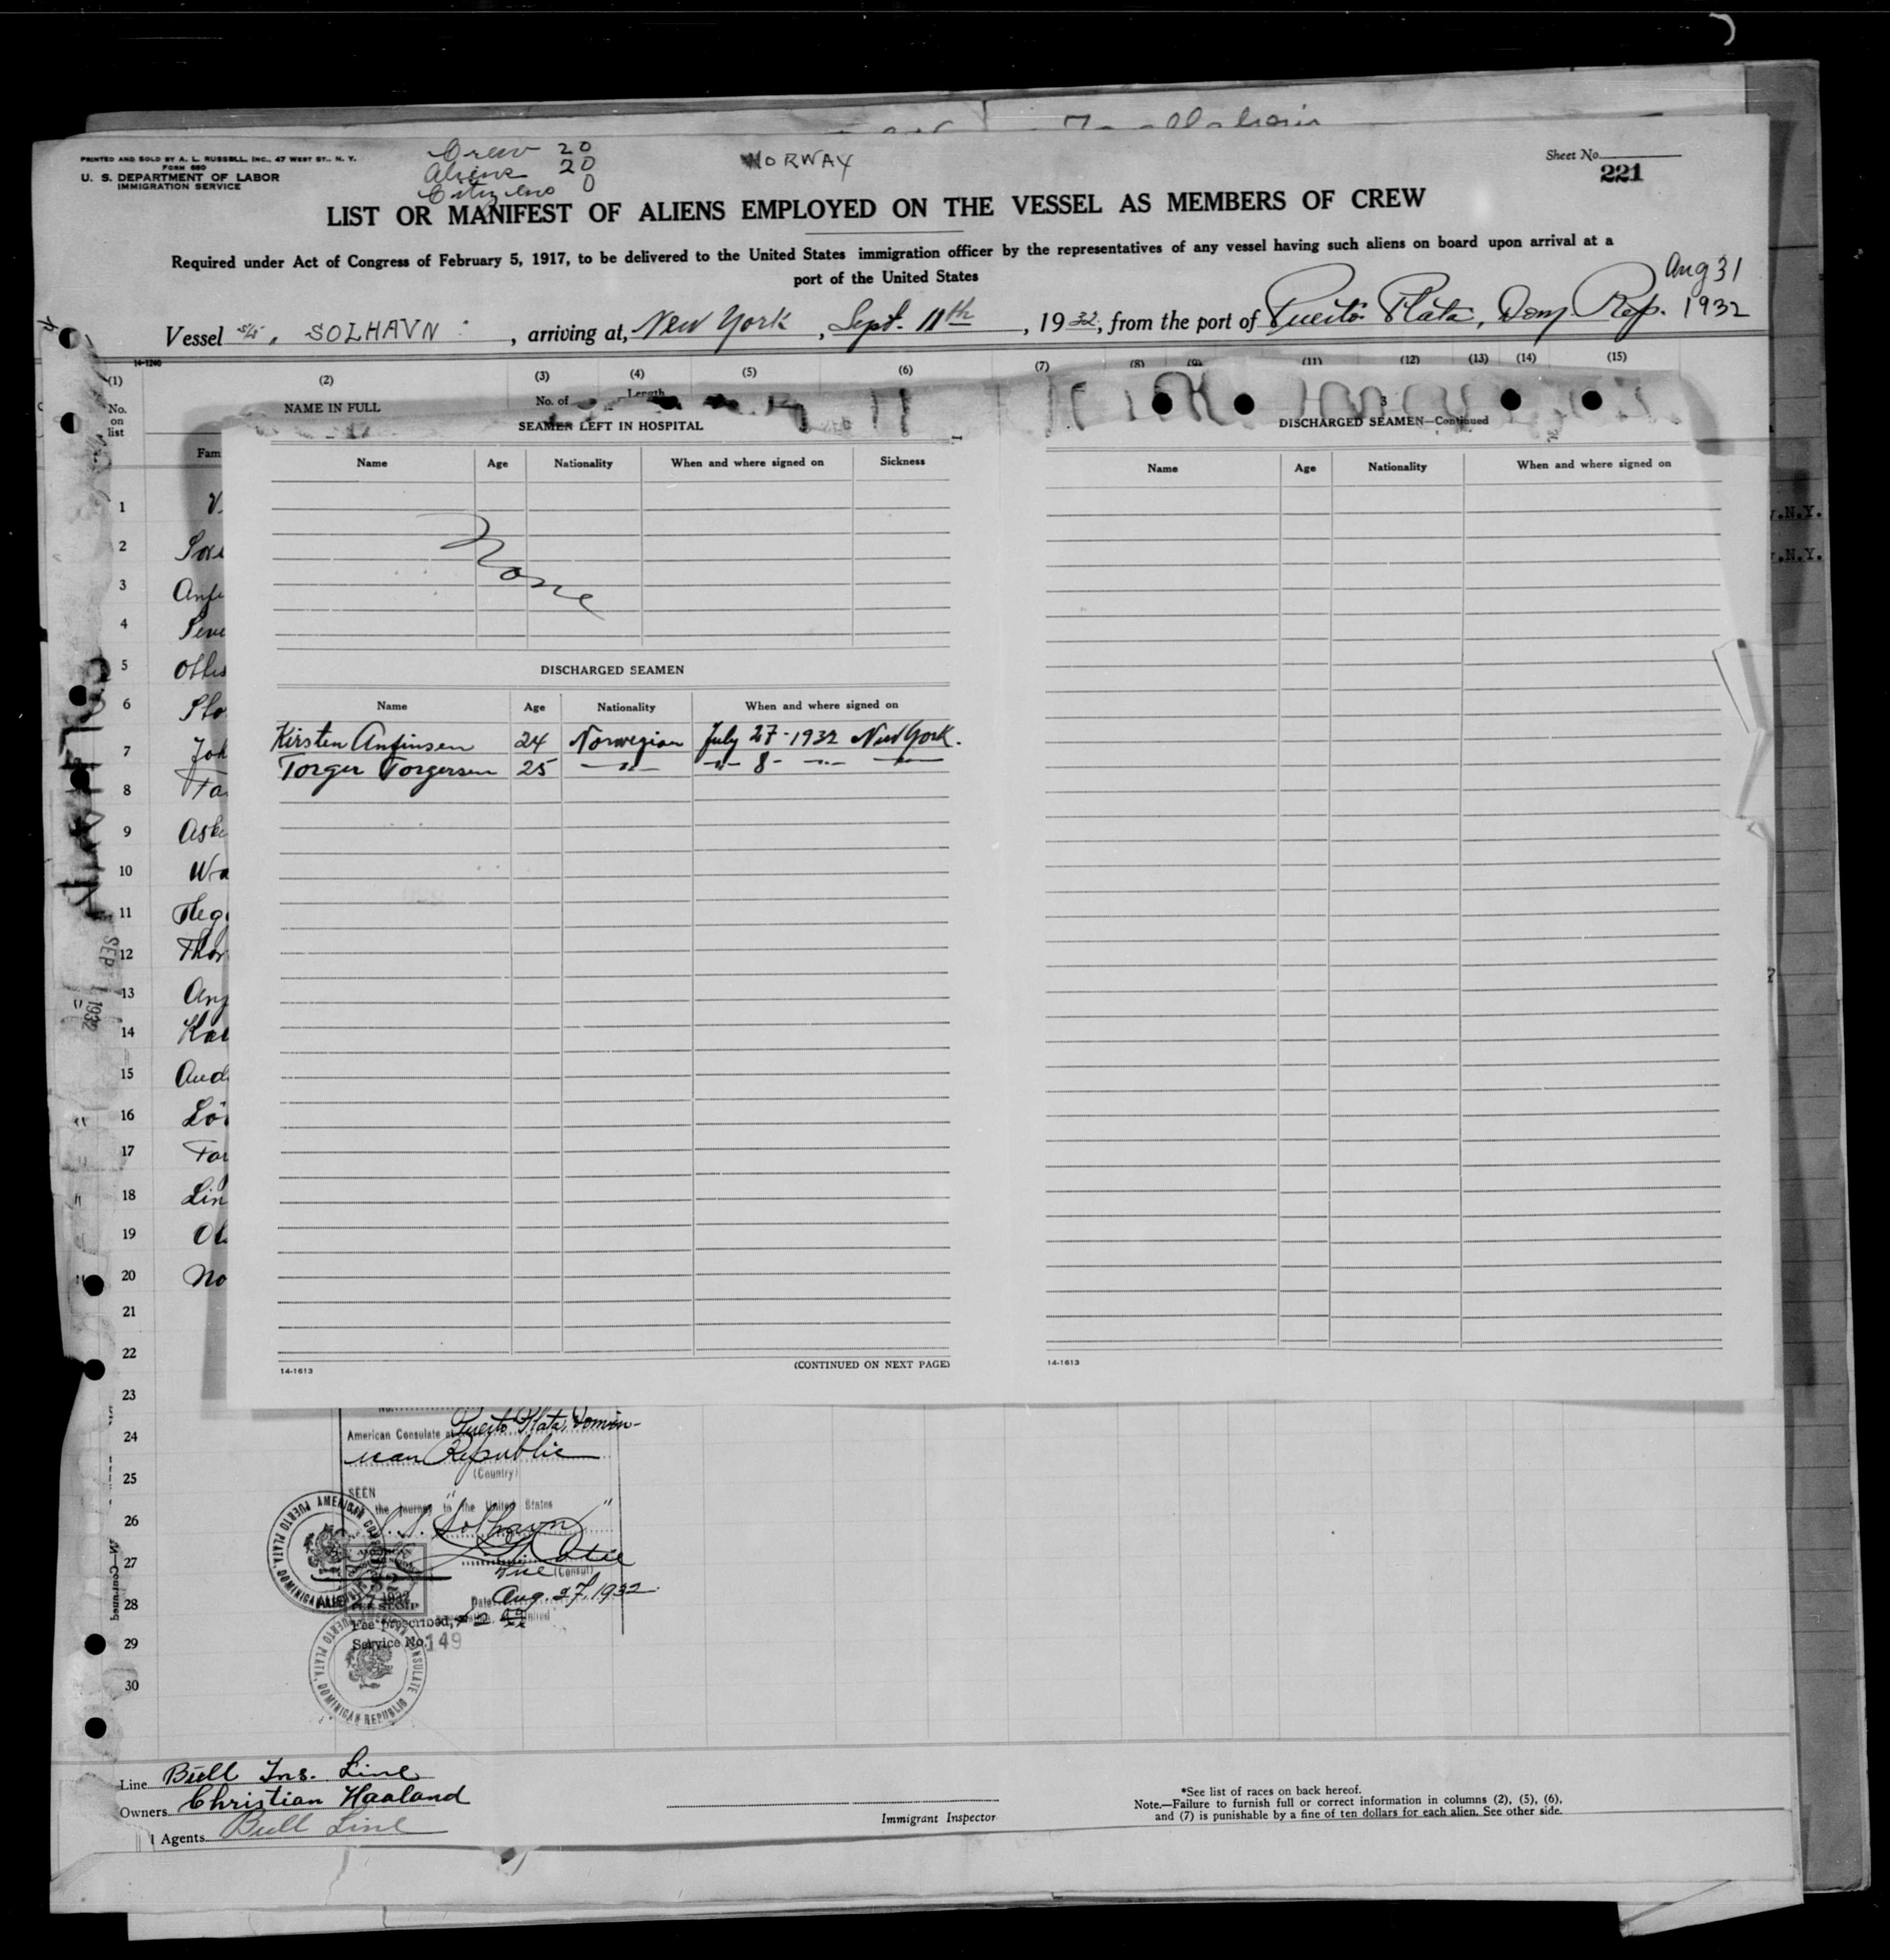 PRINTED AND SOLD BY A. L. RUSSELL, INC., 47 WEST ST., N. Y.
FORM 680
U. S. DEPARTMENT OF LABOR
IMMIGRATION SERVICE
Crew 20
Aliens 20
Citizens 0
NORWAY
Sheet No.
221
LIST OR MANIFEST OF ALIENS EMPLOYED ON THE VESSEL AS MEMBERS OF CREW
Required under Act of Congress of February 5, 1917, to be delivered to the United States immigration officer by the representatives of any vessel having such aliens on board upon arrival at a
port of the United States
Aug 31
1932
Vessel S/S, SOLHAVN, arriving at, New York, Sept. 11th, 1932, from the port of Puerto Plata, Dom. Rep.
14-1240
(1) (2) (3) (4) (5) (6) (7) (8) (9) (11) (12) (13) (14) (15)
No. on list
NAME IN FULL
No. of
Length
Fam
3
SEAMEN LEFT IN HOSPITAL
Name Age Nationality When and where signed on Sickness
None
DISCHARGED SEAMEN
Name Age Nationality When and where signed on
Kirsten Anfinsen 24 Norwegian July 27-1932 New York.
Torger Torgersen 25 -"- -"- 8- -"- -"-
(CONTINUED ON NEXT PAGE)
14-1613
DISCHARGED SEAMEN—Continued
Name Age Nationality When and where signed on
14-1613
.N.Y.
.N.Y.
1 V
2
3 Anf
4
5
6
7 Joh
8
9 Ask
10 Wa
11
12 Thor
13
14
15 And
16
17
18 Lin
19 Ol
20 No
21
22
23
24
25
26
27
28
29
30
SEP 1932
American Consulate at Puerto Plata, Domin-
ican Republic
(Country)
SEEN
the journey to the United States
S.S. "Solhavn"
Vice (Consul)
Date Aug. 27, 1932.
Fee prescribed,
Service No. 149
AMERICAN CONSULATE PUERTO PLATA, DOMINICAN REPUBLIC
Line Bull Ins. Line
Owners Christian Haaland
Agents Bull Line
Immigrant Inspector
*See list of races on back hereof.
Note.—Failure to furnish full or correct information in columns (2), (5), (6),
and (7) is punishable by a fine of ten dollars for each alien. See other side.